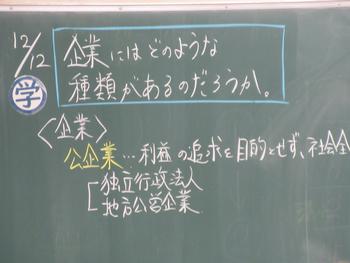 12/12
学
企業にはどのような
種類があるのだろうか。
<企業>
公企業…利益の追求を目的とせず、社会全
独立行政法人
地方公営企業